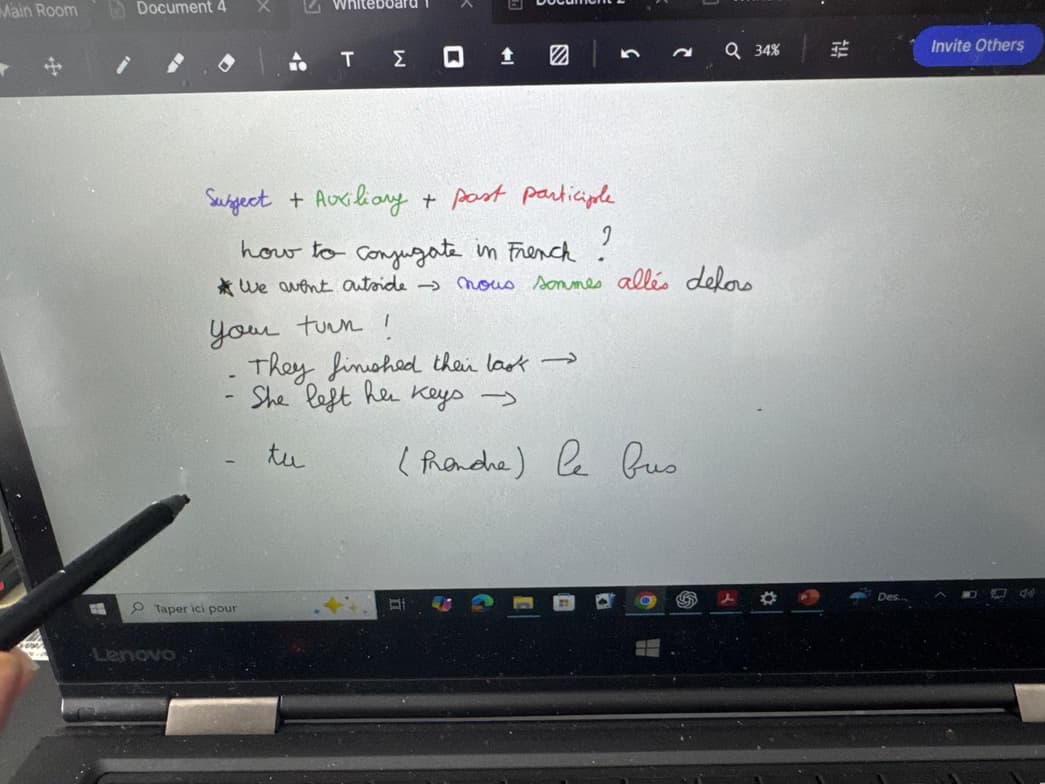 Main Room Document 4 Whiteboard 1
T Σ 34% Invite Others
Subject + Auxiliary + past participle
how to conjugate in French ?
* We went outside → nous sommes allés dehors
your turn !
- They finished their task →
- She left her keys →
- tu (Prendre) le bus
Taper ici pour Des...
Lenovo